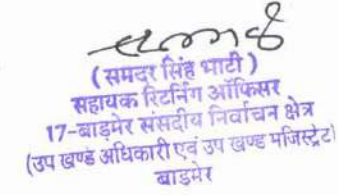 (समदर सिंह भाटी)
सहायक रिटर्निंग ऑफिसर
17-बाड़मेर संसदीय निर्वाचन क्षेत्र
(उप खण्ड अधिकारी एवं उप खण्ड मजिस्ट्रेट)
बाडमेर